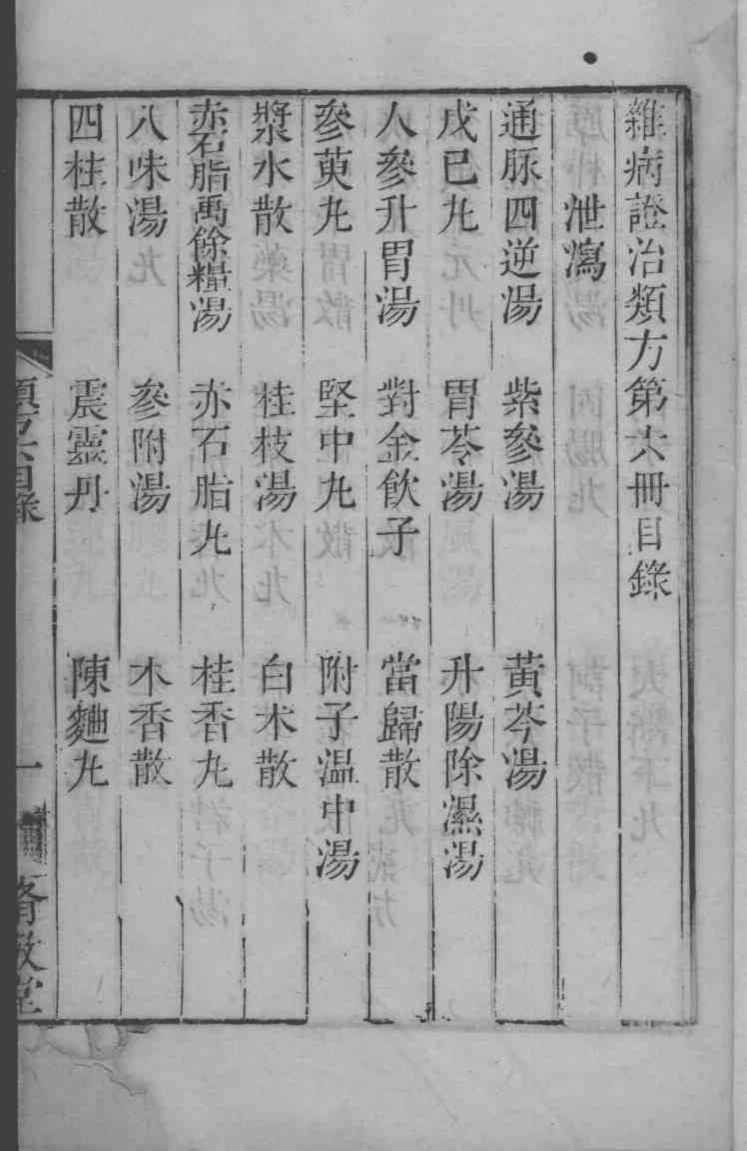 雜病證治類方第六冊目錄
泄瀉
通脈四逆湯 紫參湯 黃芩湯
戊已九 胃苓湯 升陽除濕湯
人參升胃湯 對金飲子 當歸散
參萸九 堅中九 附子溫中湯
漿水散 桂枝湯 白朮散
赤石脂禹餘糧湯 赤石脂九 桂香九
八味湯 參附湯 木香散
四柱散 震靈丹 陳麯九
類方六目錄 一 脩敬堂